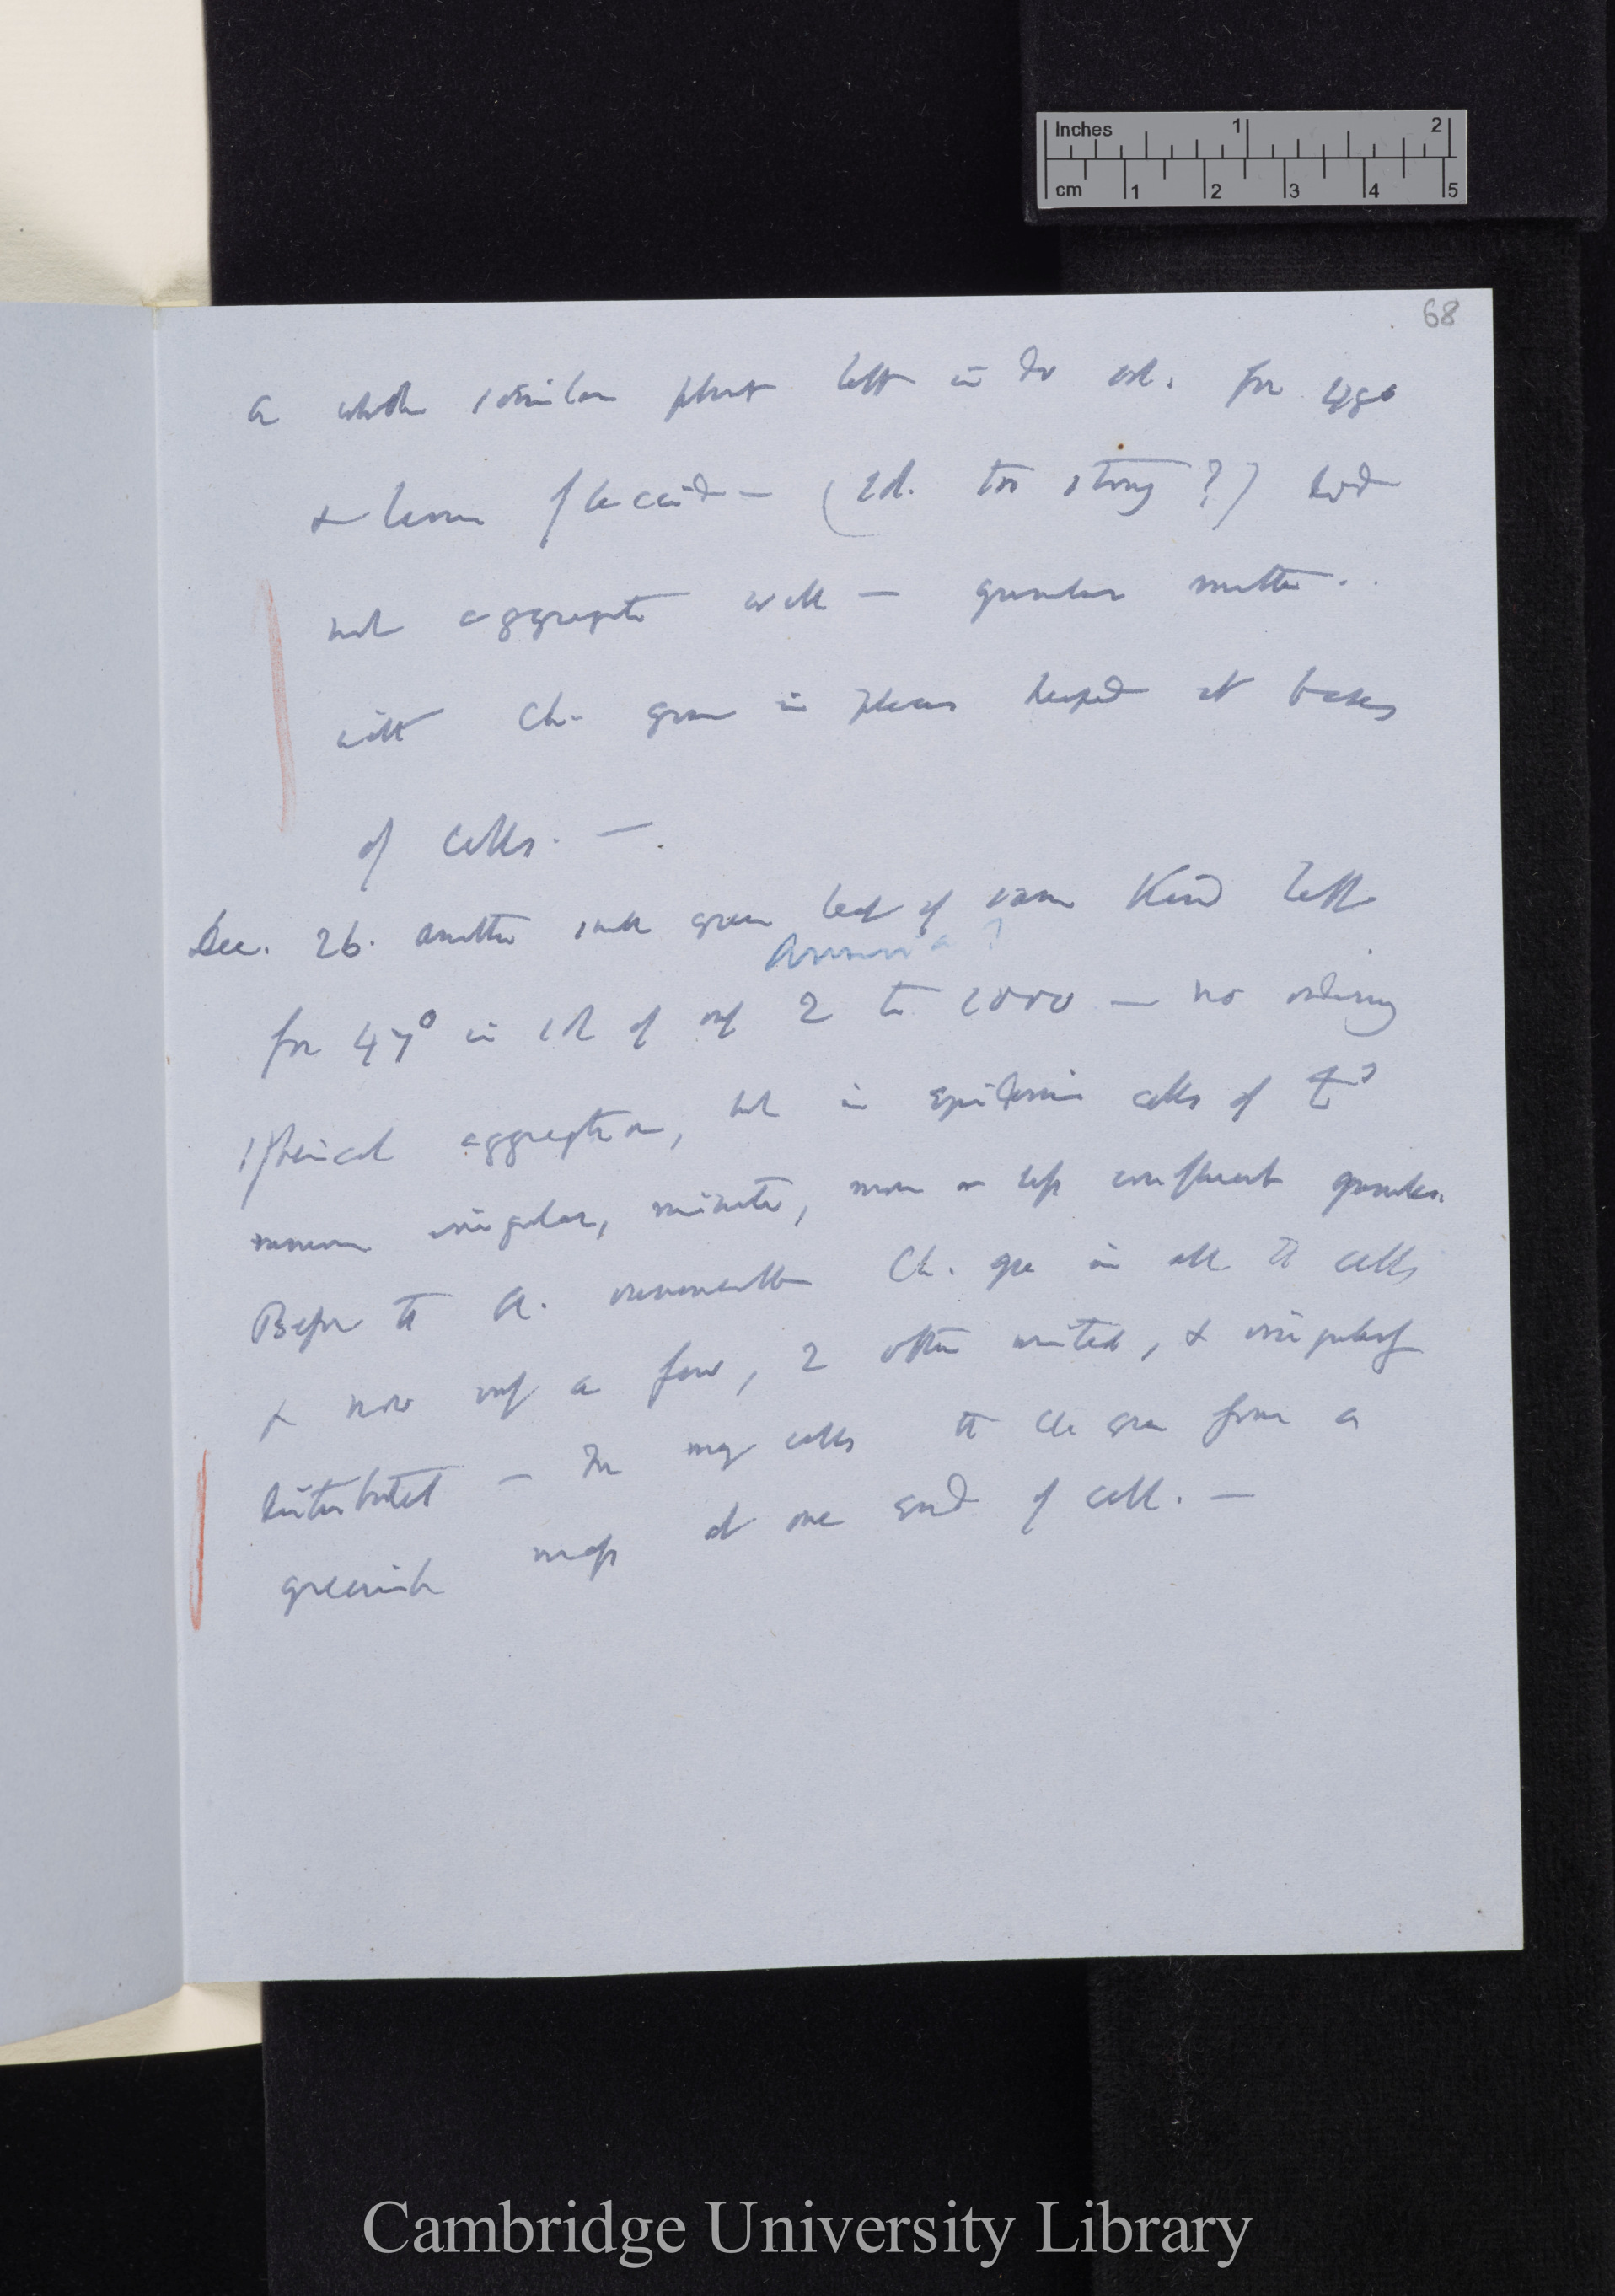 Inches 1 2
cm 1 2 3 4 5
68
A whole similar plant left in do sol. for
& leaves flaccid — (sol. too strong?) did
not aggregate well — granular matter.
with Ch. grains in places heaped at bases
of cells. —
Dec. 26. Another small green leaf of same Kind left
Ammonia?
for 47° in sol of only 2 to 1000 — no ordinary
spherical aggregation, but in epidermic cells of
numerous irregular, minute, more or less confluent granules.
Before the A. Ch. gr in all the cells
& now only a few, 2 often united, & irregularly
distributed — In many cells the Ch grains form a
greenish mass at one end of cell. —
Cambridge University Library